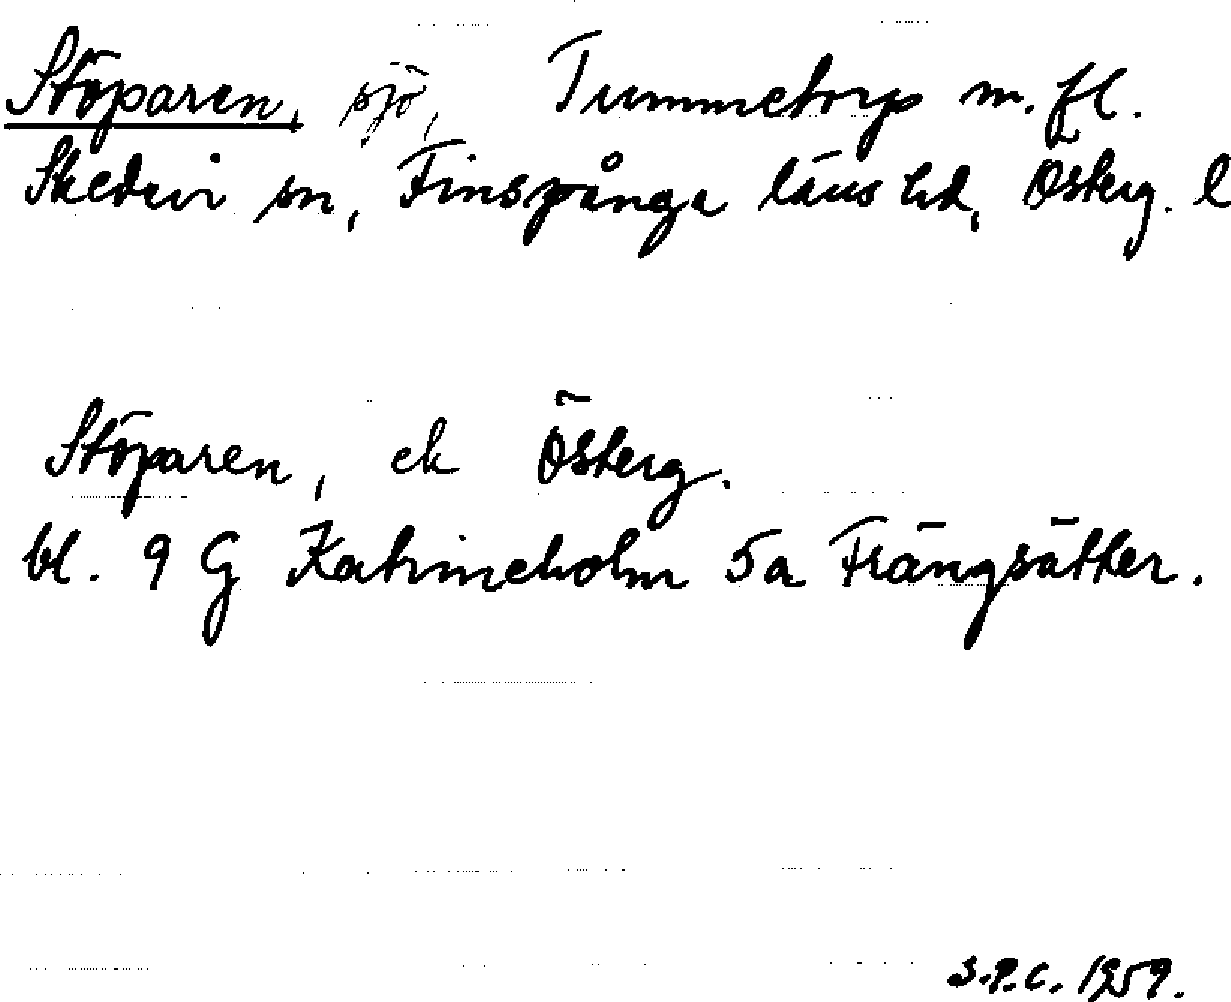 Stöparen, sjö, Tummetorp m. fl.
Skedevi sn, Finspånga läns hd, Österg. l
Stöparen, ek Österg.
bl. 9 G Katrineholm 5a Frängsätter.
S.P.C. 1959.